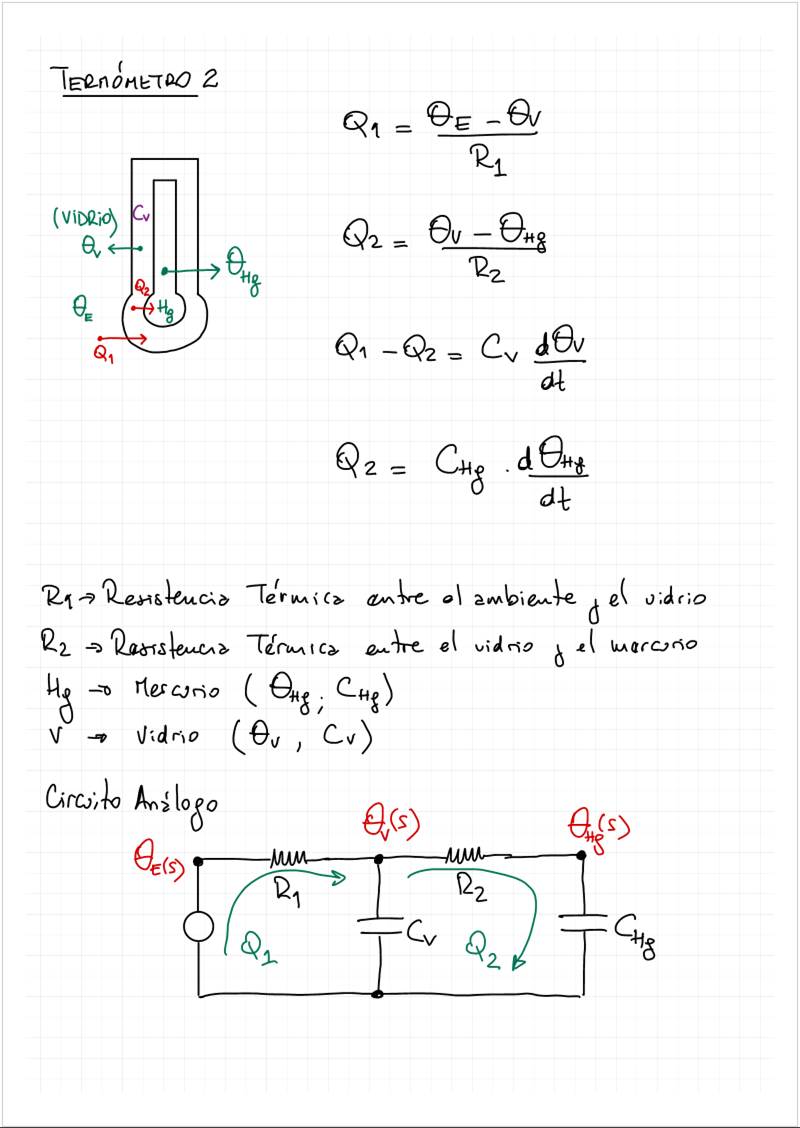 TERMÓMETRO 2
Q1 = θE - θV / R1
(VIDRIO)
CV
θV
θHg
Q2
Hg
θE
Q1
Q2 = θV - θHg / R2
Q1 - Q2 = CV dθV / dt
Q2 = CHg . dθHg / dt
R1 → Resistencia Térmica entre el ambiente y el vidrio
R2 → Resistencia Térmica entre el vidrio y el mercurio
Hg → Mercurio (θHg; CHg)
V → Vidrio (θV, CV)
Circuito Análogo
θE(s)
θV(s)
θHg(s)
R1
R2
Q1
CV
Q2
CHg